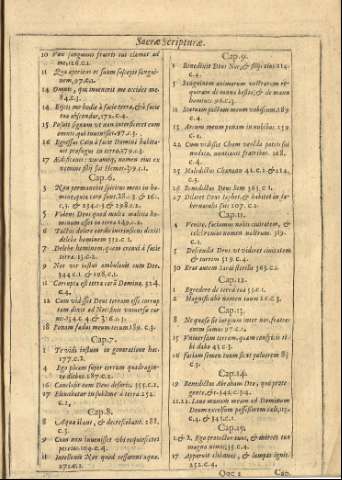 Sacræ Scripturæ.
10 Vox sanguinis fratris tui clamat ad
me, 126.c.1.
11 Quæ aperuit os suum & suscepit sangui-
nem, 97.c.2.
14 Omnis, qui invenerit me occidet me
84.c.3.
14 Ejicis me hodie à facie terræ, & à facie
tua abscondar, 172.c.4.
15 Posuit signum ut non interficeret eum
omnis qui invenisset 97.c.3.
16 Egressus Cain à facie Domini habita-
vit profugus in terra, 170.c.3.
17 Ædificavit civitatem, nomen ejus ex
nomine filij sui
Cap.6.
3 Non permanebit spiritus meus in ho-
mine, quia caro
5 Videns Deus quod multa malitia ho-
minum esset in terra 149.c.2.
6 Tactus dolore cordis intrinsecus dixit:
delebo hominem 331.c.1.
7 Delebo hominem, quem creavi à facie
terræ
9 Noe vir justus ambulavit cum Deo.
344.c.1. & 108.c.1.
11 Corrupta est terra corā Domino, 324.
c.4.
12 Cum vidisset Deus terram esse corrup-
tam dixit ad Noe: finis universæ car-
nis
18 Ponam fædus meum tecum 189. c.3.
Cap.7.
1 Te vidi justum in generatione hac.
177.c.2.
4 Ego pluam super terram quadragin-
ta diebus 187.c.1.
16 Conclusit eum Deus deforis. 335.c.1.
17 Elevaverunt in sublime à terra 252.
c.2.
Cap.8.
8 Aquæ ibant, & decrescebant. 288.
c.3.
9 Cum non invenisset ubi requiesceret
pes ejus 109.c.4.
11 Intellexit Noe quod cessassent aquæ.
272.c.1.
Cap.9.
1 Benedixit Deus Noe, & filijs ejus 214.
c.4.
5 Sanguinem animarum vestrarum re-
quiram de manu bestiæ, & de manu
hominis 96.c.3.
9 Statuam pactum meum vobiscum, 189.
c.4.
13 Arcum meum ponam in nubibus
22 Cum vidisset Cham verēda patris sui
nudata, nuntiavit fratribus. 228.
c.4.
25 Maledictus Chanaan 41.c.1. & 214.
c.3.
26 Benedictus Deus Sem 363.c.1.
27 Dilatet Deus Japhet, & habitet in ta-
bernaculis Sem 107.c.2.
Cap.11.
4 Venite, faciamus nobis civitatem, &
celebremus nomen nostrum. 319.
c.1.
5 Descendit Deus ut videret civitatem
& turrim 519.c.4.
30 Erat autem Sarai sterilis 363.c.2.
Cap.12.
1 Egredere de terra tua 35.c.1.
2 Magnificabo nomen tuum 20.c.3.
Cap.13.
8 Ne quæso sit jurgium inter nos, fratres
enim sumus 97.c.1.
15 Universam terram, quam conspicis ti-
bi dabo 43.c.3.
16 Faciam semen tuum sicut pulverem 83
c.3.
Cap.14.
19 Benedictus Abraham Deo, quo prote-
gente, &c. 342.c.3.4.
11.22. Levo manum meam ad Dominum
Deum excelsum possessorem cæli, 123.
c.4. & 341.c.1.
Cap.15.
1.& 2. Ego protector tuus, & merces tua
magna nimis 33.c.4.
17 Apparuit clibanus, & lampas ignis.
252.c.4.
Ooo 2 Cap.